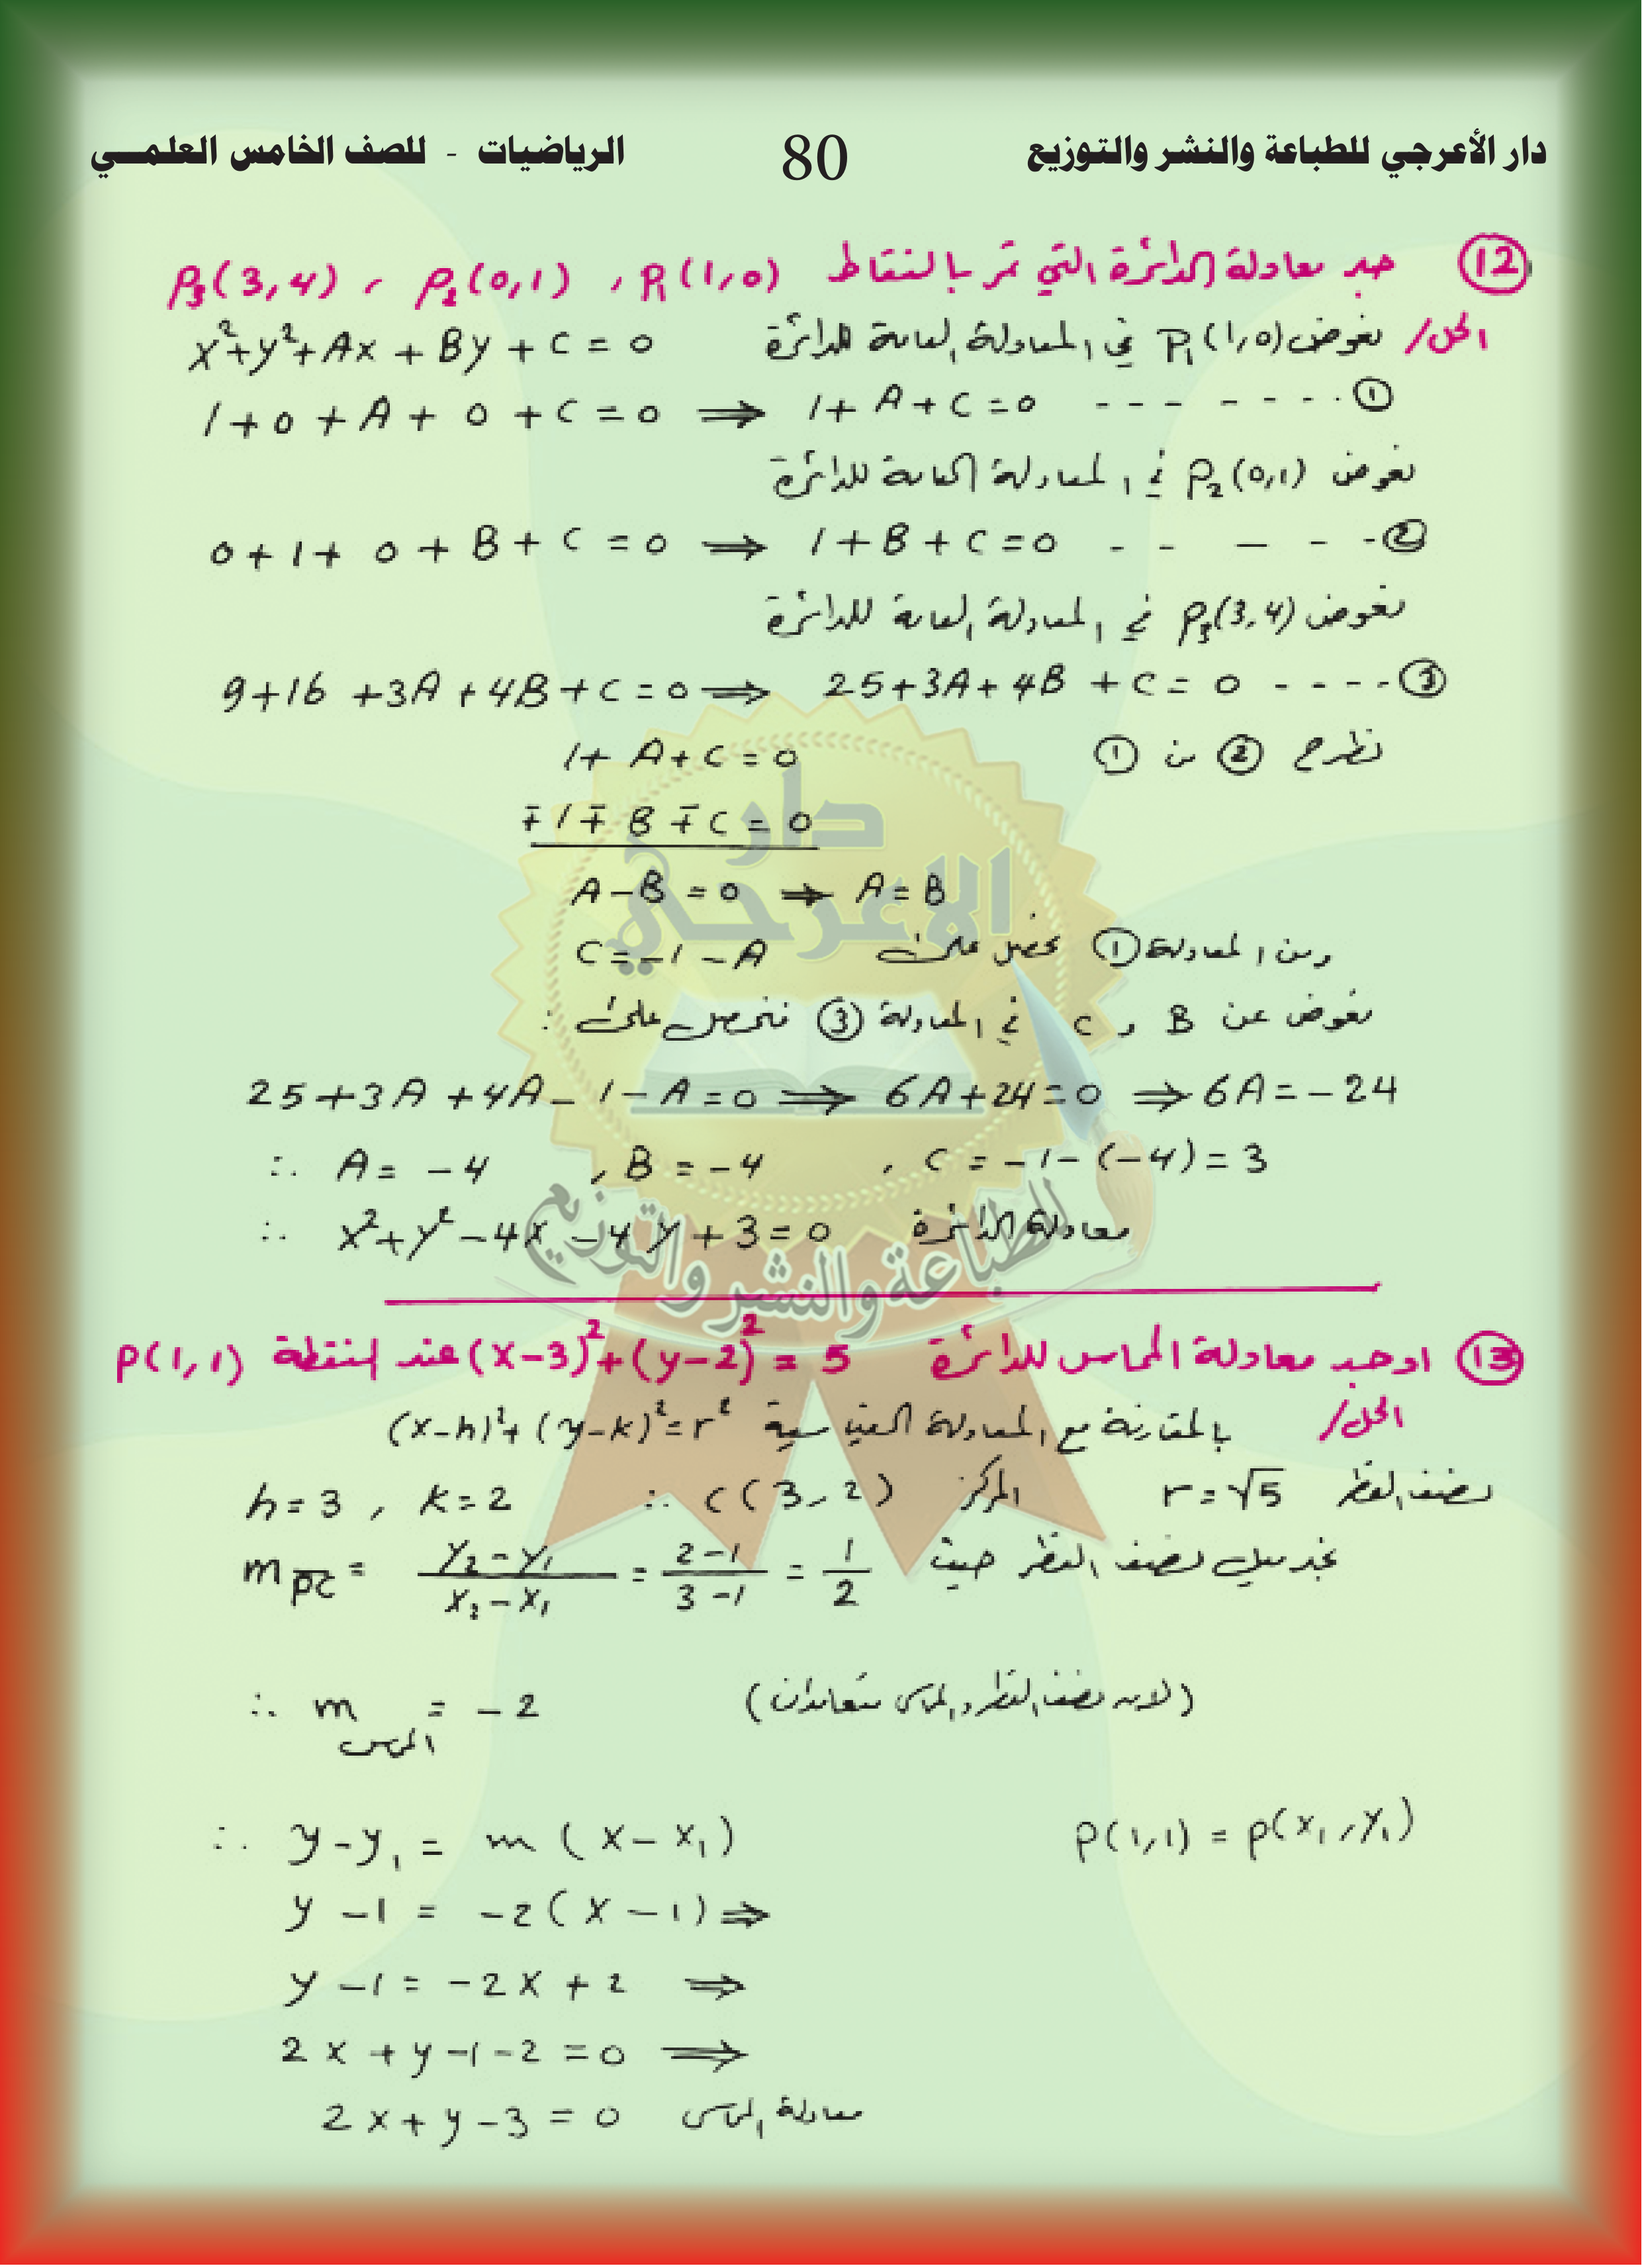 دار الأعرجي للطباعة والنشر والتوزيع 80 الرياضيات - للصف الخامس العلمي
12 جد معادلة الدائرة التي تمر بالنقاط P₁(1,0) , P₂(0,1) , P₃(3,4)
الحل/ نعوض P₁(1,0) في المعادلة العامة للدائرة x²+y²+Ax+By+C=0
1+0+A+0+C=0 ⇒ 1+A+C=0 -------- ①
نعوض P₂(0,1) في المعادلة العامة للدائرة
0+1+0+B+C=0 ⇒ 1+B+C=0 - - — - - ②
نعوض P₃(3,4) في المعادلة العامة للدائرة
9+16+3A+4B+C=0 ⇒ 25+3A+4B+C=0 ---- ③
نطرح ② من ①
1+A+C=0
∓1∓B∓C=0
A-B=0 ⇒ A=B
ومن المعادلة ① نحصل على C=-1-A
نعوض عن B و C في المعادلة ③ فنحصل على :
25+3A+4A-1-A=0 ⇒ 6A+24=0 ⇒ 6A=-24
∴ A=-4 , B=-4 , C=-1-(-4)=3
∴ x²+y²-4x-4y+3=0 معادلة الدائرة
13 اوجد معادلة المماس للدائرة (x-3)²+(y-2)²=5 عند النقطة P(1,1)
الحل/ بالمقارنة مع المعادلة القياسية (x-h)²+(y-k)²=r²
h=3 , k=2 ∴ C(3,2) المركز r=√5 نصف القطر
نجد ميل نصف القطر حيث m PC = (y₂-y₁)/(x₂-x₁) = (2-1)/(3-1) = 1/2
∴ m المماس = -2 (لان نصف القطر والمماس متعامدان)
∴ y-y₁=m(x-x₁) P(1,1)=P(x₁,y₁)
y-1=-2(x-1) ⇒
y-1=-2x+2 ⇒
2x+y-1-2=0 ⇒
2x+y-3=0 معادلة المماس
دار
الاعرجي
للطباعة والنشر والتوزيع